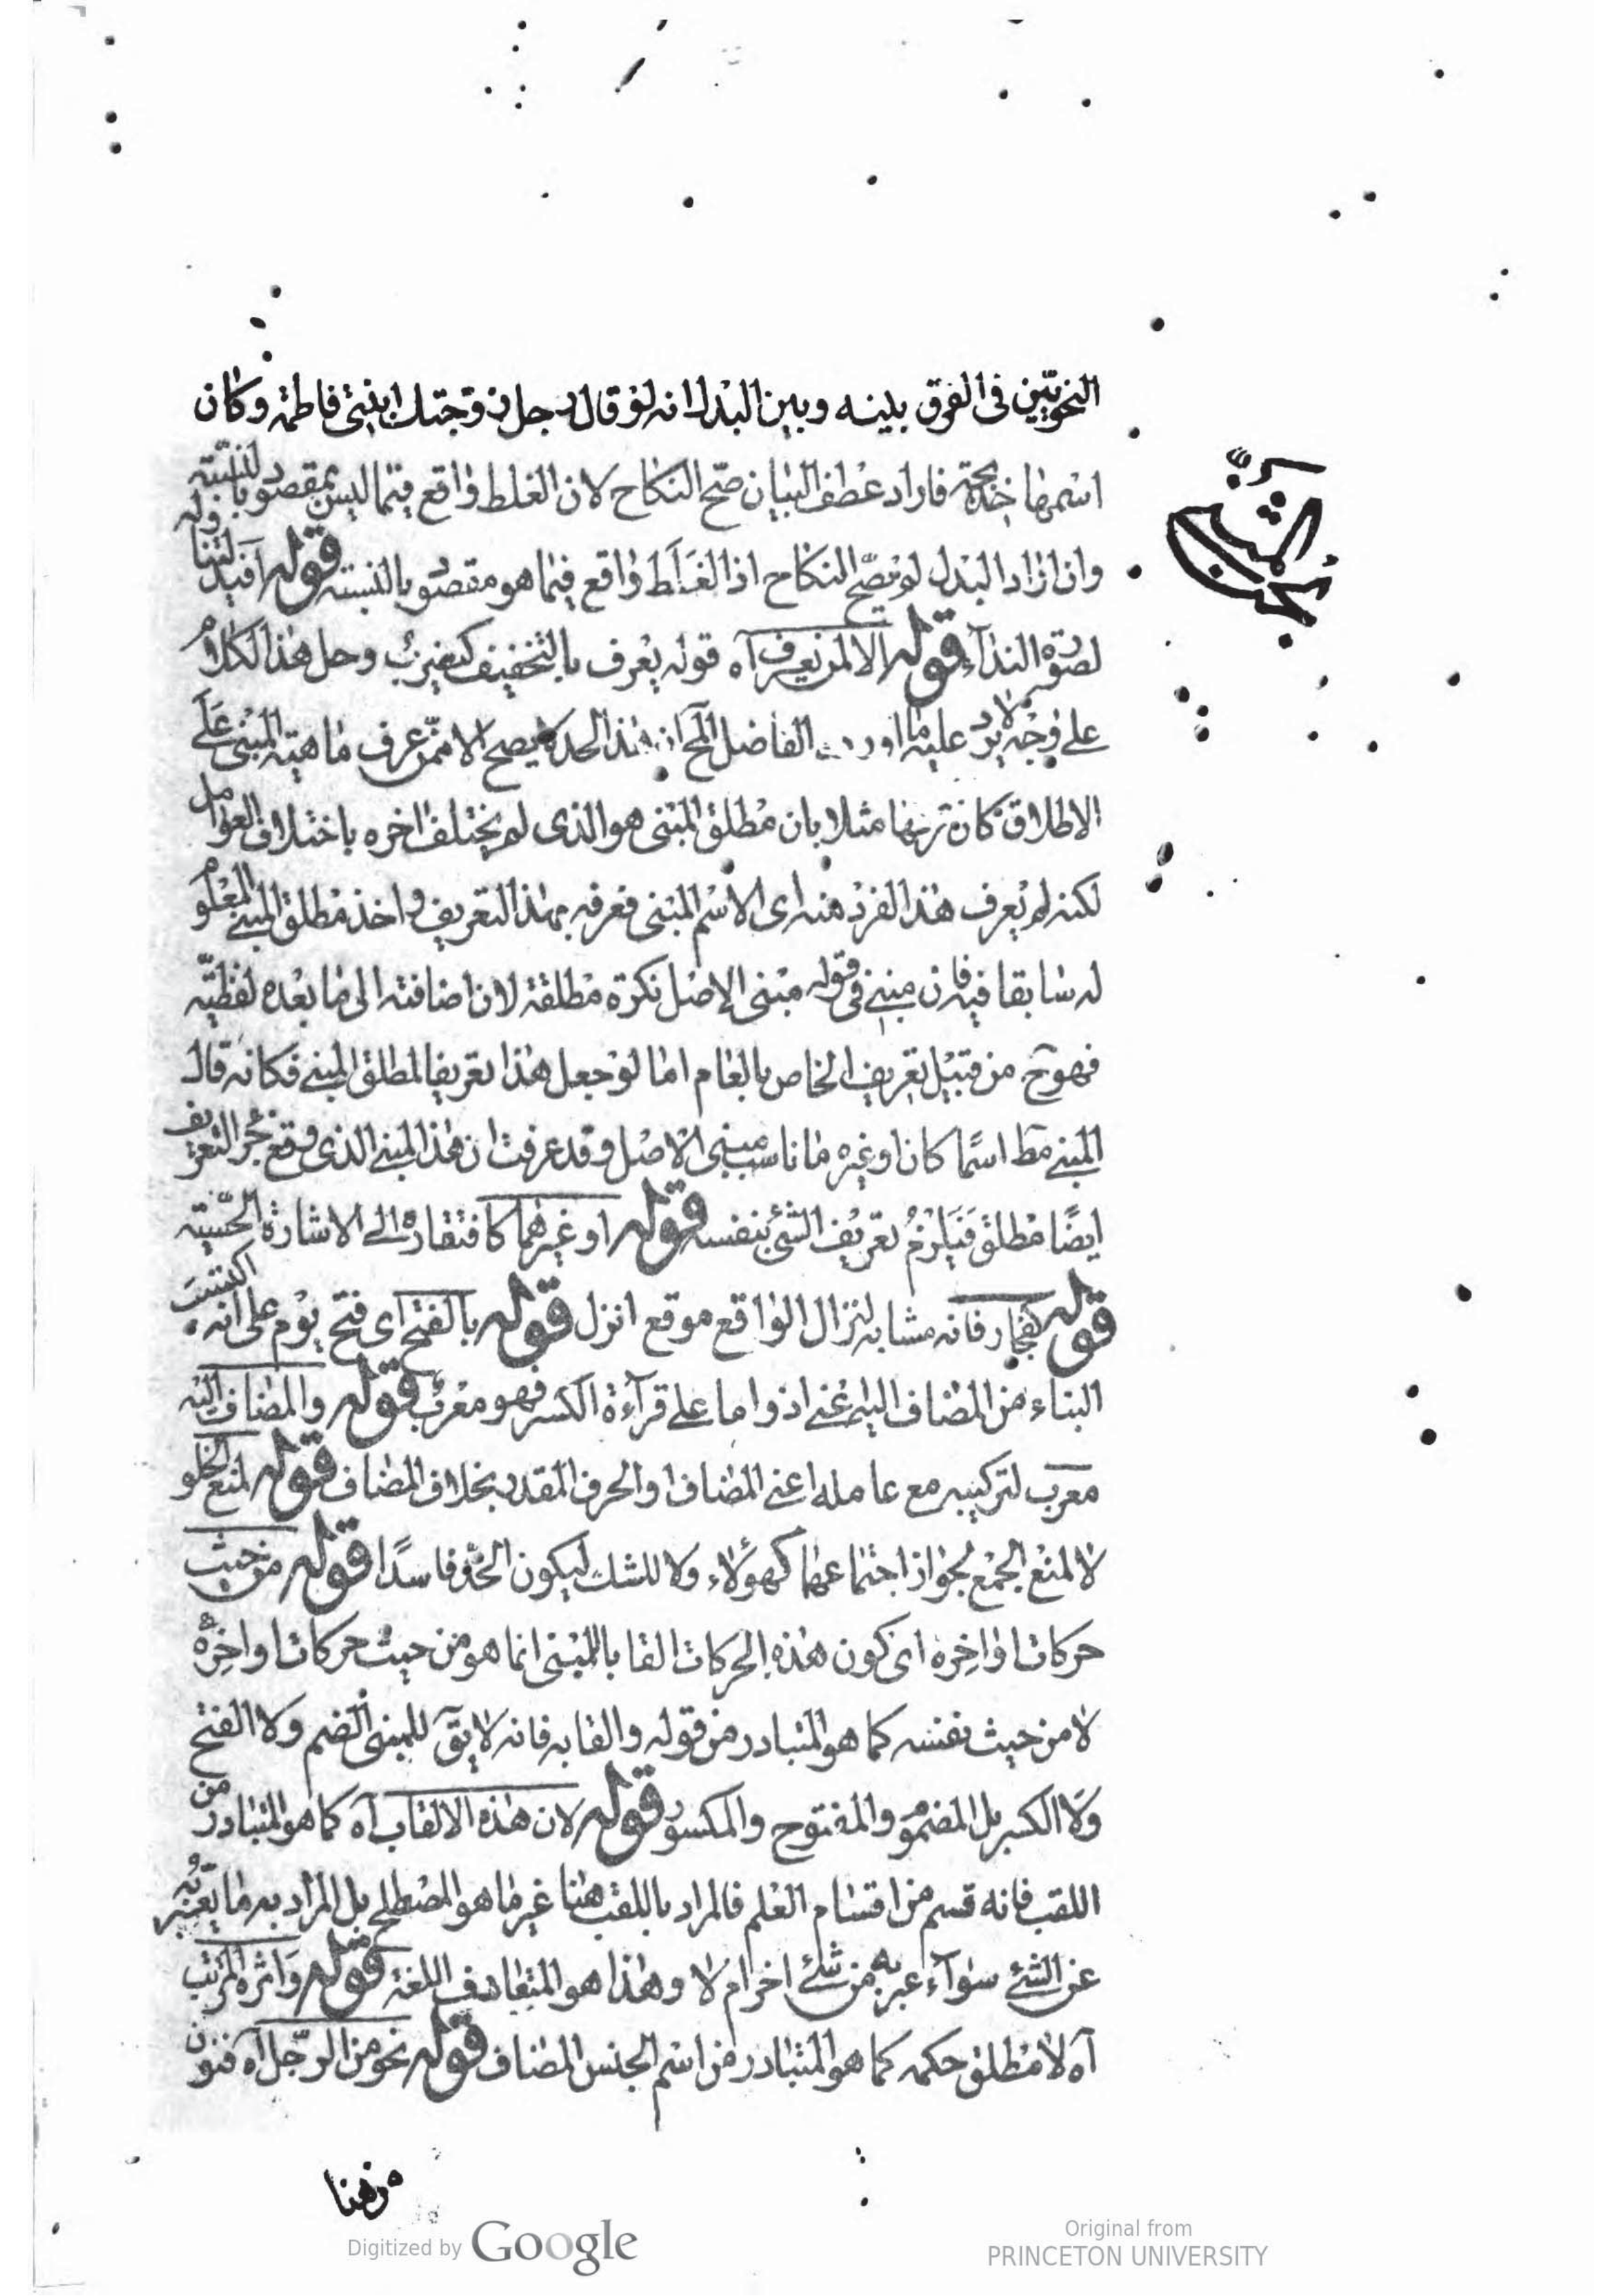 النحويّين فى الفرق بينه وبين البدل انه لو قال رجل زوّجتك ابنتى فاطمة وكان
اسمها خديجة فاراد عطف البيان صحّ النكاح لان الغلط واقع فيما ليس بمقصود بالنسبة
وان اراد البدل لم يصحّ النكاح اذ الغلط واقع فيما هو مقصود بالنسبة قوله
لصورة النداء قوله الا لمن يعرف آه قوله يعرف بالتخفيف كيضرب وحل هذا الكلام
على وجه لا يرد عليه ما اورد الفاضل المح ان هذا الحد لا يصح الا ممّن عرف ماهية المبنى على
الاطلاق كان عرفها مثلا بان مطلق المبنى هو الذى لم يختلف اخره باختلاف العوامل
لكنه لم يعرف هذا الفرد منه اى الاسم المبنى فعرفه بهذا التعريف واخذ مطلق المبنى المعلوم
له سابقا فيه فان مبنى فى قوله مبنى الاصل نكرة مطلقة لان اضافته الى ما بعده لفظيّه
فهو ح من قبيل تعريف الخاص بالعام اما لو جعل هذا تعريفا لمطلق المبنى فكانه قال
المبنى مط اسمًا كان او غيره ما ناسب مبنى الاصل وقد عرفت ان هذا المبنى الذى وقع جزء التعريف
ايضًا مطلق فيلزم تعريف الشئ بنفسه قوله او غيرهما كافتقاره الى الاشارة الحسّية
قوله كفجار فانه مشابه لنزال الواقع موقع انزل قوله بالفتح اى فتح يوم على انه اكتسب
البناء من المضاف اليه اعنى اذ واما على قرآءة الكسر فهو معرب قوله والمضاف اليه
معرب لتركيبه مع عامله اعنى المضاف او الحرف المقدر بخلاف المضاف قوله لمنع الخلو
لا لمنع الجمع لجواز اجتماعهما كهؤلاء ولا للشك ليكون الحد فاسدًا قوله من حيث
حركات اواخره اى كون هذه الحركات القابا للمبنى انما هو من حيث حركات اواخره
لا من حيث نفسه كما هو المتبادر من قوله والقابه فانه لا يقّ للمبنى الضم ولا الفتح
ولا الكسر بل المضموم والمفتوح والمكسور قوله لان هذه الالقاب آه كما هو المتبادر من
اللقب فانه قسم من اقسام العلم فالمراد باللقب هنا غير ما هو المصطلح بل المراد به ما يعبّر به
عن الشئ سوآء عبر به من شئ اخر ام لا وهذا هو المتعارف فى اللغة قوله واثره المرتب
آه لا مطلق حكمه كما هو المتبادر من اسم الجنس المضاف قوله نحو من الرّجل آه فنون
من هنا
Digitized by Google
Original from
PRINCETON UNIVERSITY